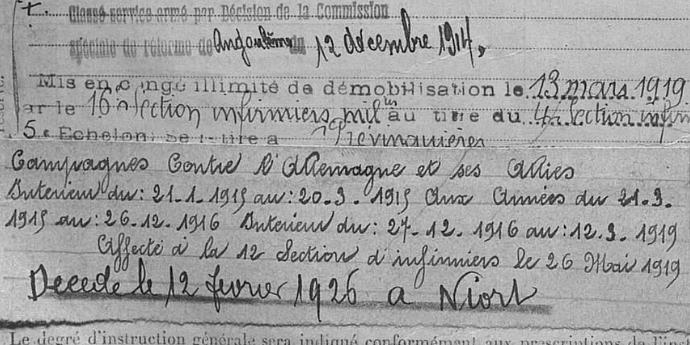 Classé service armé par Décision de la Commission
spéciale de réforme de Angoulême 12 décembre 1914,
Mis en congé illimité de démobilisation le 13 mars 1919
ar le 10 Section infirmiers mil au titre du Section infir
5e Echelon: se retire à
Campagnes Contre l'Allemagne et ses Alliés
Interieur du: 21-1-1915 au: 20-3-1915 Aux Années du 21.3.
1915 au: 26.12.1916 Interieur du: 27-12.1916 au: 12.3.1919
Affecté à la 12 Section d'infirmiers le 26 Mai 1919
Décédé le 12 février 1926 à Niort
Le degré d'instruction générale sera indiqué conformément aux prescriptions de l'inst